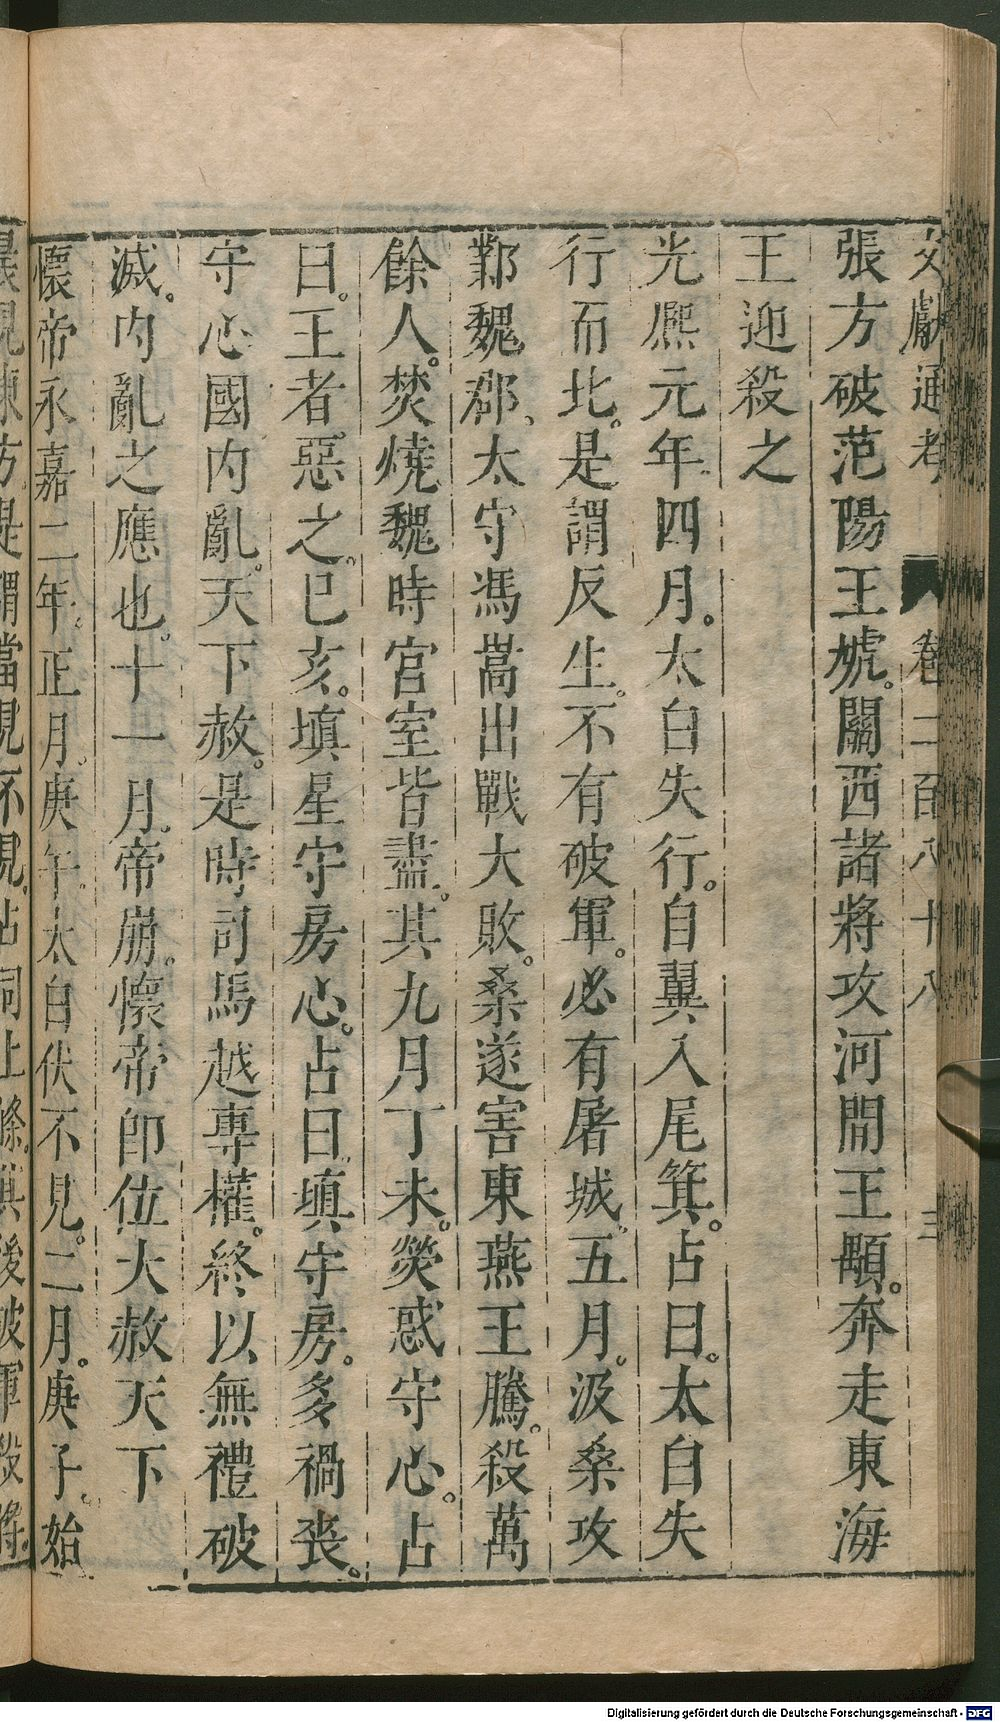 文獻通考 卷二百八十八 三
張方破范陽王虓。關西諸將攻河間王顒。奔走東海
王迎殺之
光熈元年。四月。太白失行。自翼入尾箕。占曰。太白失
行而北。是謂反生。不有破軍。必有屠城。五月。汲桑攻
鄴魏郡。太守馮嵩出戰大敗。桑遂害東燕王騰。殺萬
餘人。焚燒魏時宮室皆盡。其九月丁未。熒惑守心。占
曰。王者惡之。己亥。塡星守房心。占曰。塡守房。多禍喪。
守心國內亂。天下赦。是時司馬越專權。終以無禮破
滅。內亂之應也。十一月。帝崩。懷帝卽位大赦天下
懷帝永嘉二年。正月。庚午。太白伏不見。二月。庚子。始
晨見東方是謂當見不見。占同上條。其後破軍殺將。
Digitalisierung gefördert durch die Deutsche Forschungsgemeinschaft - DFG